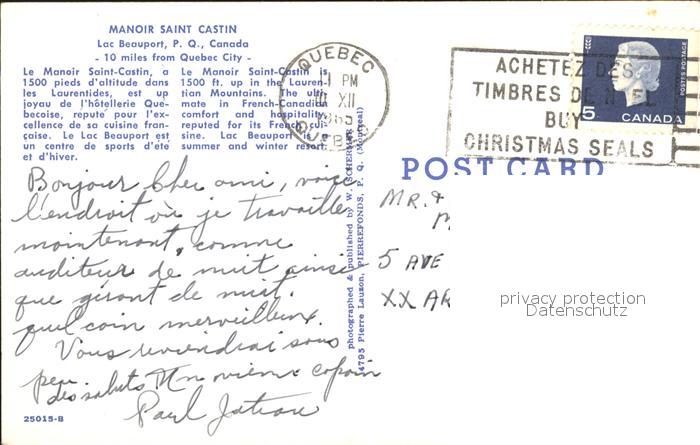 MANOIR SAINT CASTIN
Lac Beauport, P. Q., Canada
- 10 miles from Quebec City -
Le Manoir Saint-Castin, a
1500 pieds d'altitude dans
les Laurentides, est un
joyau de l'hôtellerie Qué-
becoise, reputé pour l'ex-
cellence de sa cuisine fran-
çaise. Le Lac Beauport est
un centre de sports d'été
et d'hiver.
Le Manoir Saint-Castin is
1500 ft. up in the Lauren-
tian Mountains. The ulti-
mate in French-Canadian
comfort and hospitality
reputed for its French cui-
sine. Lac Beauport is a
summer and winter resort.
QUEBEC
PM
XII
QUEBEC
ACHETEZ DES
TIMBRES DE NOEL
BUY
CHRISTMAS SEALS
5
CANADA
POSTES POSTAGE
POST CARD
photographed & published by W. SCHERMER
14795 Pierre Lauzon, PIERREFONDS, P. Q. (Montreal)
Bonjour Cher ami, voici
l'endroit où je travaille
maintenant, comme
auditeur de nuit ainsi
que gérant de nuit.
quel coin merveilleux.
Vous reviendrai sous
peu.
des saluts Un vieux copain
Paul
25015-B
MR. &
5 AVE
XX AR
privacy protection
Datenschutz